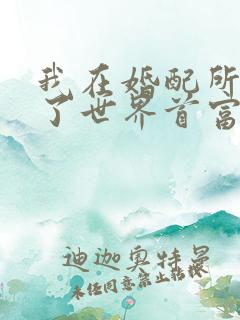 我在婚配所
了世界首富
迪迦奥特曼
未经同意禁止转载